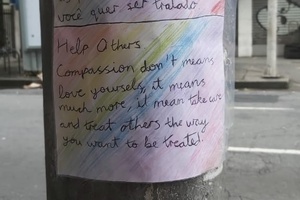 você quer ser tratado
Help Others
Compassion don't means
love yourself, it means
much more, it mean take care
and treat others the way
you want to be treated.